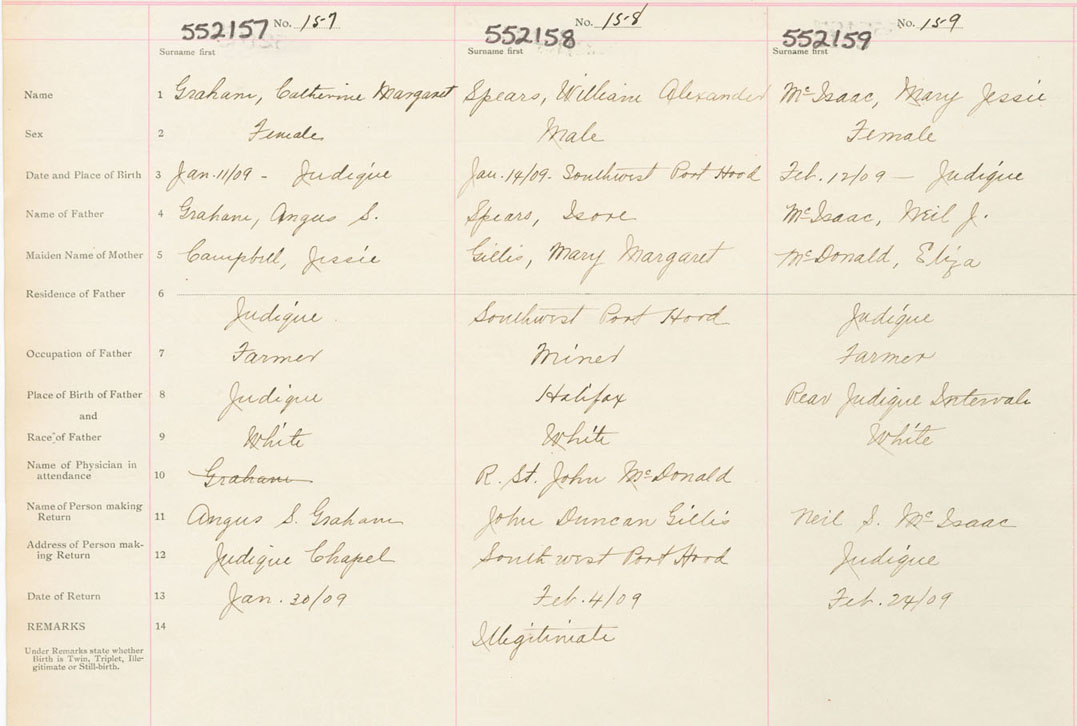 552157 No. 157 552158 No. 158 552159 No. 159
Surname first Surname first Surname first
Name 1 Graham, Catherine Margaret Spears, William Alexander McIsaac, Mary Jessie
Sex 2 Female Male Female
Date and Place of Birth 3 Jan. 11/09 - Judique Jan. 14/09. Southwest Port Hood Feb. 12/09 - Judique
Name of Father 4 Graham, Angus S. Spears, Isore McIsaac, Neil J.
Maiden Name of Mother 5 Campbell, Jessie Gillis, Mary Margaret McDonald, Eliza
Residence of Father 6
Judique Southwest Port Hood Judique
Occupation of Father 7 Farmer Miner Farmer
Place of Birth of Father 8 Judique Halifax Rear Judique Intervale
and
Race of Father 9 White White White
Name of Physician in
attendance 10 Graham R. St. John McDonald
Name of Person making
Return 11 Angus S. Graham John Duncan Gillis Neil S. McIsaac
Address of Person mak-
ing Return 12 Judique Chapel Southwest Port Hood Judique
Date of Return 13 Jan. 30/09 Feb. 4/09 Feb. 24/09
REMARKS 14 Illegitimate
Under Remarks state whether
Birth is Twin, Triplet, Ille-
gitimate or Still-birth.